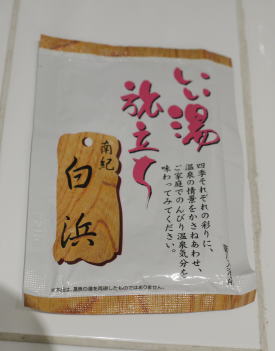 いい湯
旅立ち
四季それぞれの彩りに、
温泉の情景をかさねあわせ、
ご家庭でのんびり温泉気分を
味わってみてください。
南紀
白浜
※本品は、温泉の湯を再現したものではありません。